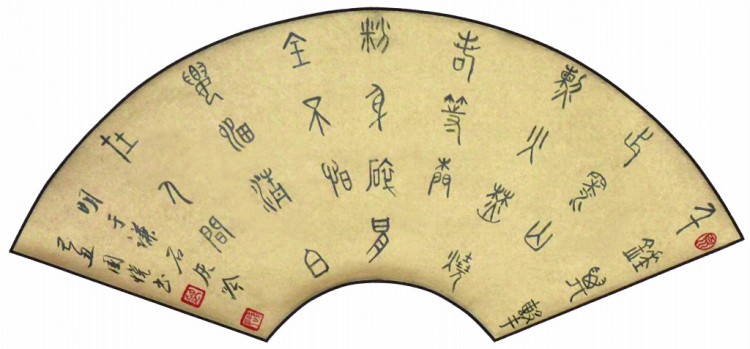 千錘萬擊
出深山
烈火焚燒
若等閒
粉身碎骨
全不怕
要留清白
在人間
明于謙石灰吟
孟國悦书